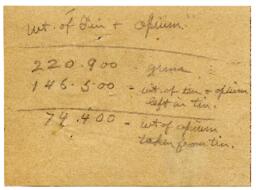 wt. of tin + opium.
220.900 grms
146.500 - wt. of tin + opium
left in tin.
74.400 - wt of opium
taken from tin.